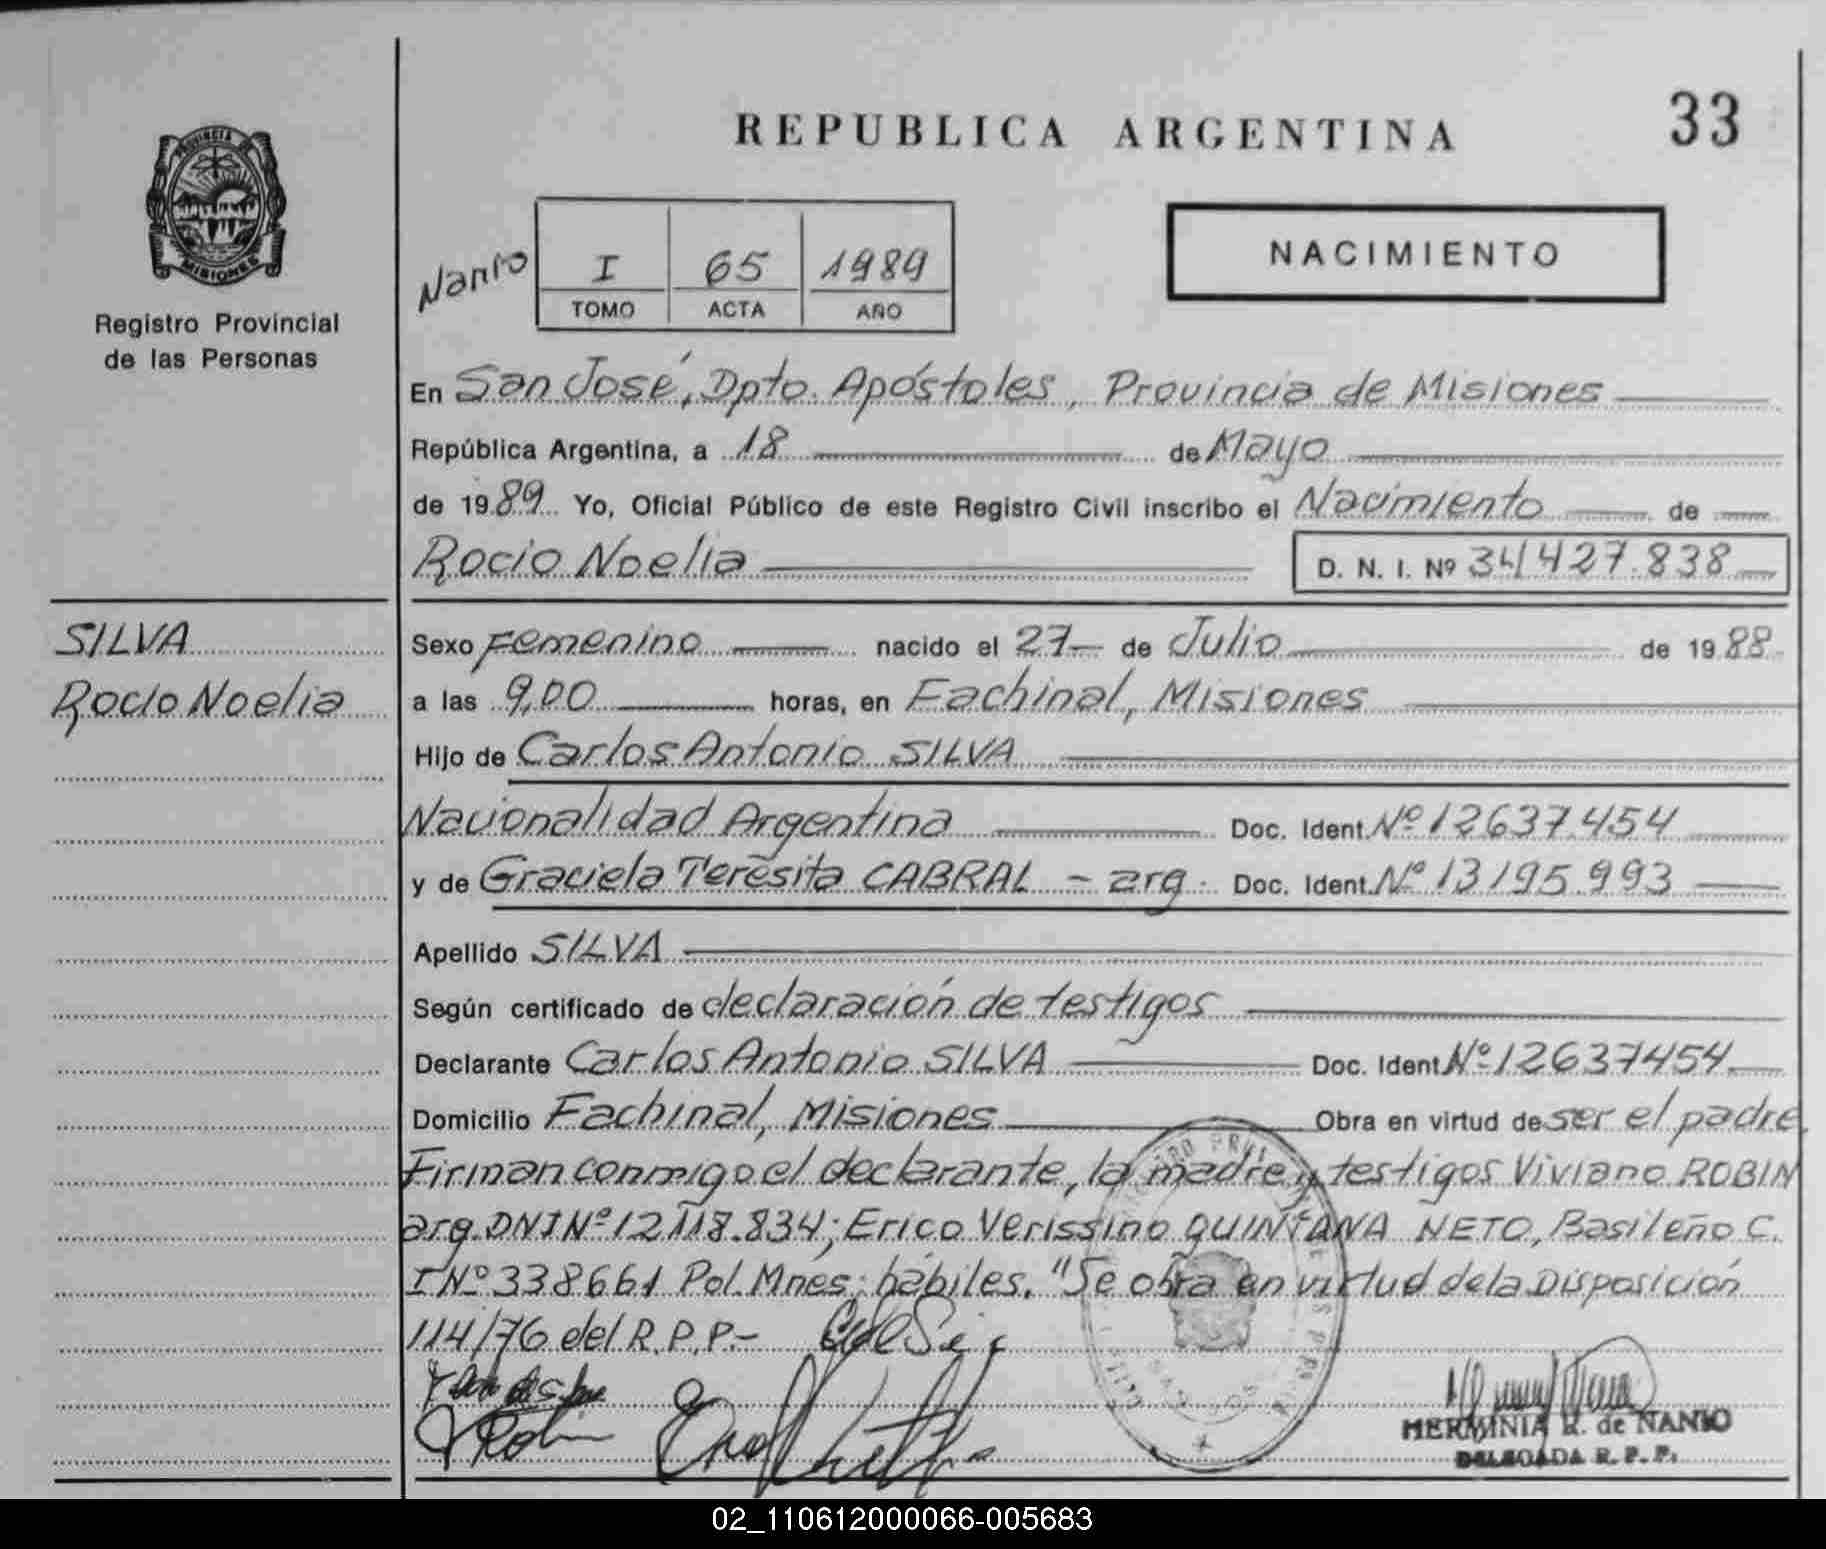 REPUBLICA ARGENTINA
33
PROVINCIA DE
MISIONES
Registro Provincial
de las Personas
Nanio
I 65 1989
TOMO ACTA AÑO
NACIMIENTO
En San José, Dpto. Apóstoles, Provincia de Misiones
República Argentina, a 18 de Mayo
de 1989 Yo, Oficial Público de este Registro Civil inscribo el Nacimiento de
Rocio Noelia D. N. I. Nº 34427.838
SILVA
Rocio Noelia
Sexo Femenino nacido el 27 de Julio de 1988
a las 9,00 horas, en Fachinal, Misiones
Hijo de Carlos Antonio SILVA
Nacionalidad Argentina Doc. Ident. Nº 12637454
y de Graciela Teresita CABRAL - arg. Doc. Ident. Nº 13195.993
Apellido SILVA
Según certificado de declaración de testigos
Declarante Carlos Antonio SILVA Doc. Ident. Nº 12637454
Domicilio Fachinal, Misiones Obra en virtud de ser el padre.
Firman conmigo el declarante, la madre y testigos Viviano ROBIN
arg. DNI Nº 12118.834; Erico Verissino QUINTANA NETO, Basileño C.
I Nº 338661 Pol. Mnes; hábiles. "Se obra en virtud de la Disposición
114/76 del R.P.P.-
HERMINIA R. de NANIO
DELEGADA R. P. P.
02_110612000066-005683